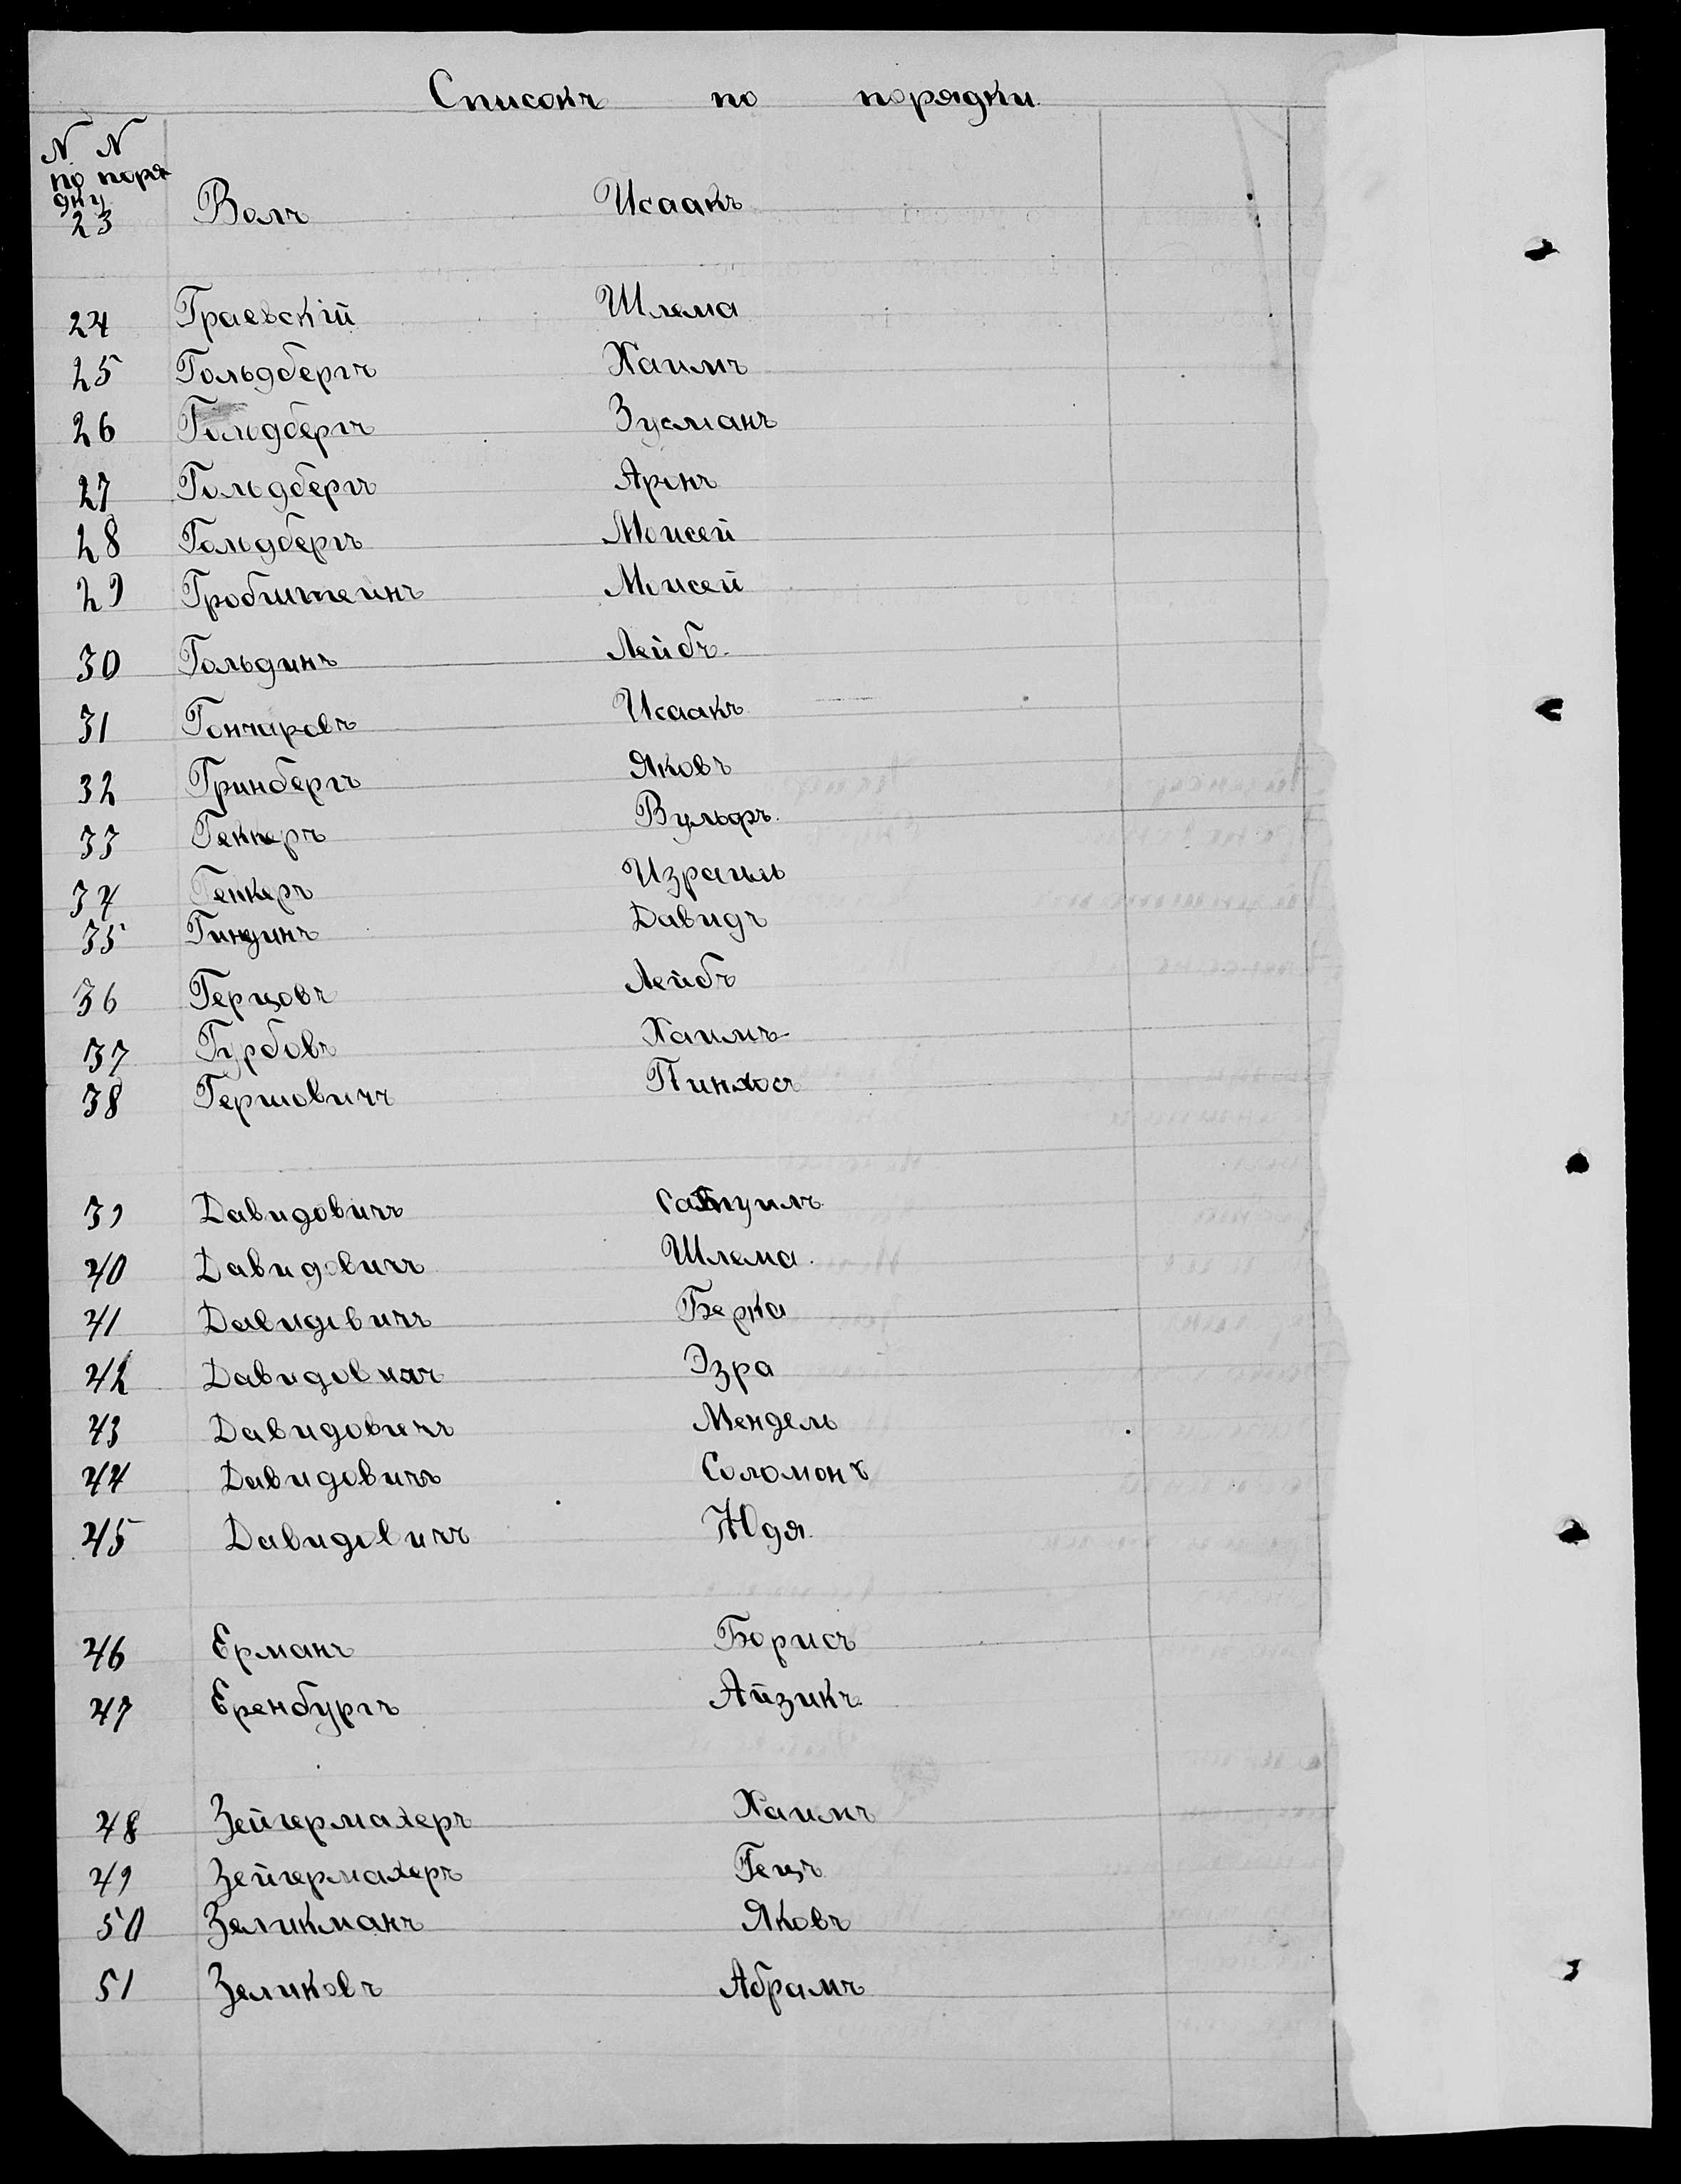 Списокъ по порядки
N. N
по поря
дку
23 Волъ Исаакъ
24 Граевскій Шлема
25 Гольдбергъ Хаимъ
26 Гольдбергъ Зусманъ
27 Гольдбергъ Аронъ
28 Гольдбергъ Моисей
29 Гробштеинъ Моисей
30 Гольдинъ Лейбъ
31 Гончаровъ Исаакъ
32 Гринбергъ Яковъ
33 Геккеръ Вульфъ
34 Генкеръ Израиль
35 Гиндинъ Давидъ
36 Герцовъ Лейбъ
37 Гурбовъ Хаимъ
38 Гершовичъ Пинхосъ
39 Давидовичъ
40 Давидовичъ Шлема
41 Давидовичъ Берка
42 Давидовичъ Эзра
43 Давидовичъ Мендель
44 Давидовичъ Соломонъ
45 Давидовичъ Юдя
46 Ерманъ Борисъ
47 Еренбургъ Айзикъ
48 Зейгермахеръ Хаимъ
49 Зейгермахеръ Гецъ
50 Зеликманъ Яковъ
51 Зеликовъ Абрамъ